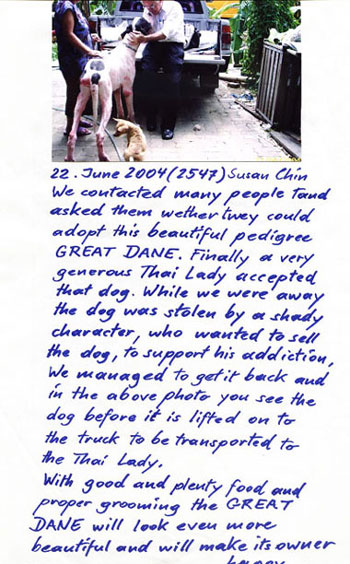 22. June 2004 (2547) Susan Chin
We contacted many people Tand
asked them wether they could
adopt this beautiful pedigree
GREAT DANE. Finally a very
generous Thai Lady accepted
that dog. While we were away
the dog was stolen by a shady
character, who wanted to sell
the dog, to support his addiction,
We managed to get it back and
in the above photo you see the
dog before it is lifted on to
the truck to be transported to
the Thai Lady.
With good and plenty food and
proper grooming the GREAT
DANE will look even more
beautiful and will make its owner